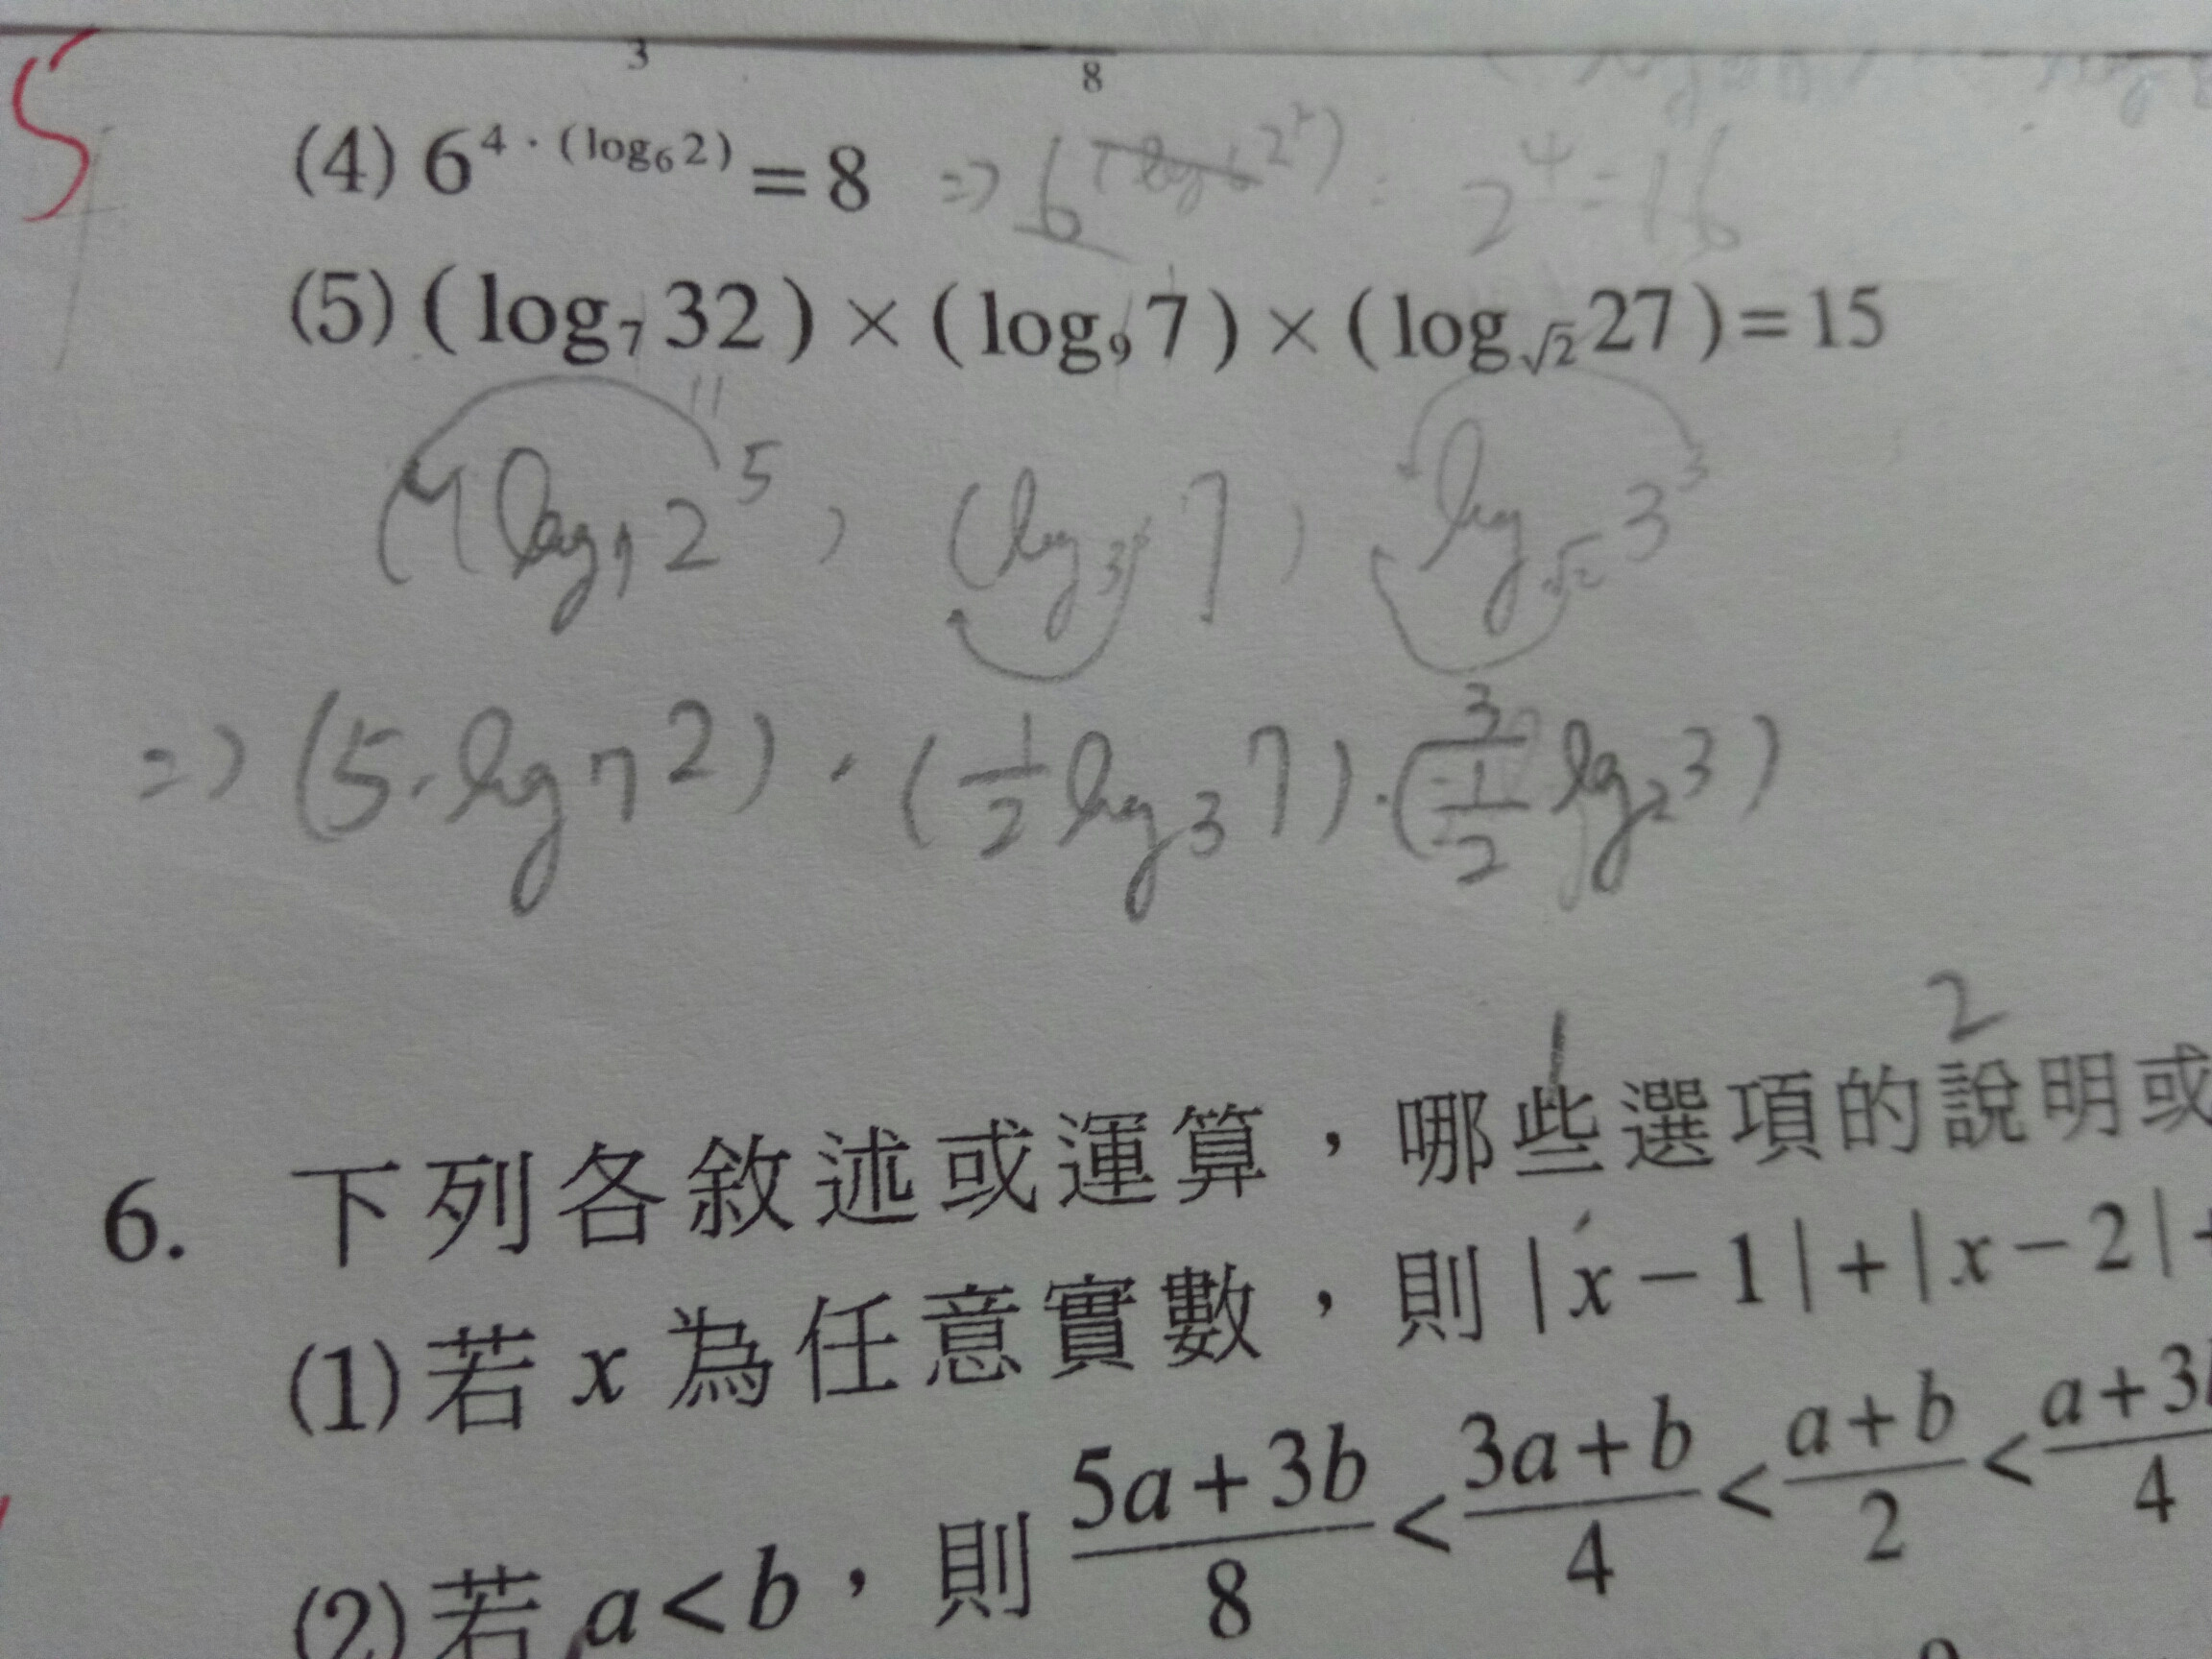 3
8
5
(4) 6^{4·(log₆2)} = 8 => 6^{(log₆2⁴)} = 2⁴ = 16
(5) (log₇32) × (log₉7) × (log_{√2}27) = 15
(log₇2⁵) (log_{3²}7) log_{√2}3³
=> (5·log₇2)·(1/2 log₃7)·(3/(1/2) log₂3)
1 2
6. 下列各敘述或運算，哪些選項的說明或
(1) 若 x 為任意實數，則 |x－1|＋|x－2|＋
(2) 若 a＜b，則 (5a+3b)/8 < (3a+b)/4 < (a+b)/2 < (a+3b)/4